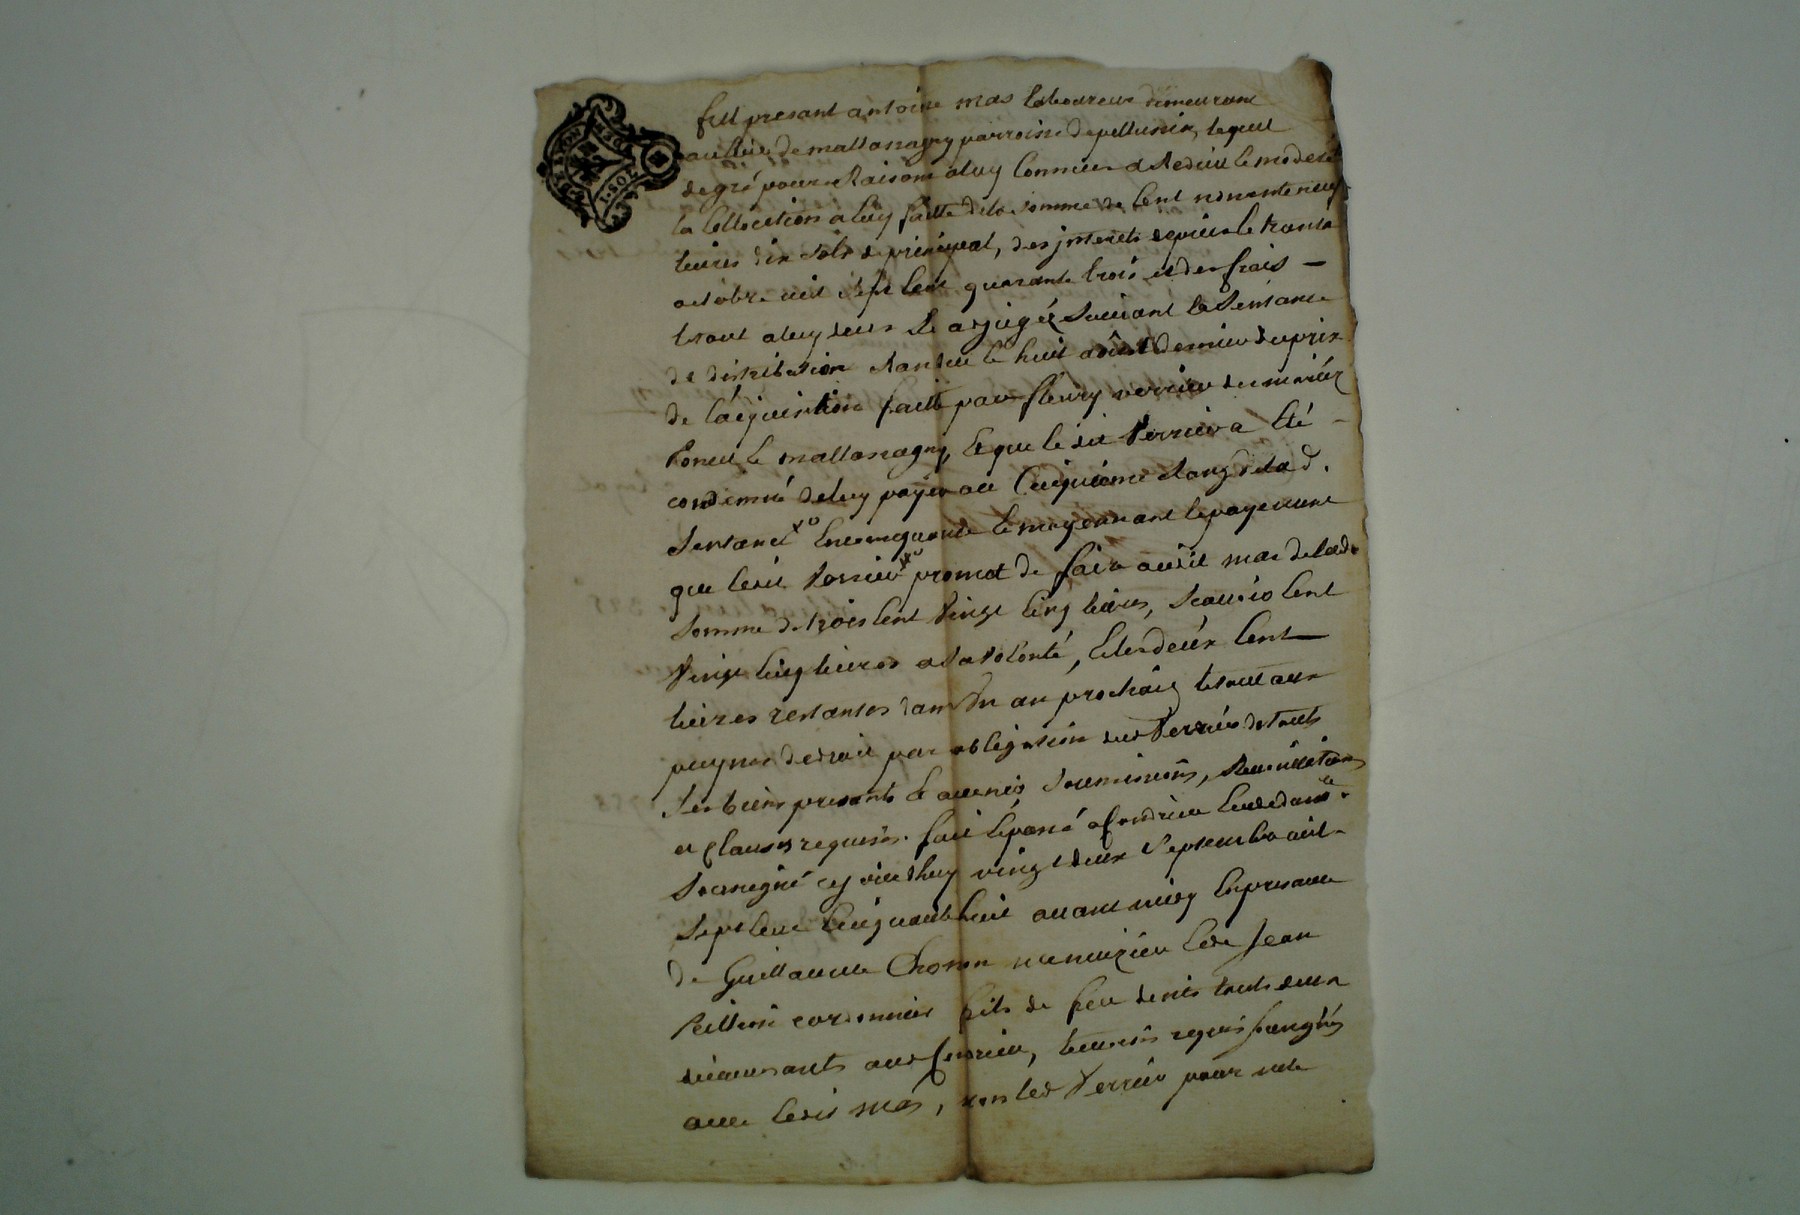 fut present antoine mas laboureur demeurant
au lieu de mallanagny parroisse de pellussin, lequel
de gré pour Raisons a luy connues a Reduit et moderé
la collocation a luy faitte de la somme de cent nonante neuf
livres dix sols de principal, des interets depuis le trante
octobre mil sept cent quarante trois et des frais
le tout a luy deub et adjugée suivant la sentance
de distribution Randue le huit aoust dernier du prix
de l'acquisition faitte par fleury verrier des mariéz
et mallanagny, et que le dit Verrier a eté
condemné de luy payer au cinquième Rang de lad.
sentance et moyennant le payement
que ledit Verrier promet de faire audit mas de lad.
somme de trois cent vingt cinq livres, scavoir cent
vingt cinq livres a sa volonté, et les deux cent
livres restantes dans un an prochain le tout aux
peynes de droit par obligation dud Verrier de touts
ses biens presents et avenir soumissions, Renonciations
et clauses requises. fait et passé a
soussigné cejourdhuy vingt deux septembre mil
sept cent cinquante huit avant midy en presence
de Guillaume menuizier et de Jean
cordonnier fils de feu denis touts deux
demeurants aud , temoins requis
avec ledit mas, non led Verrier pour ne